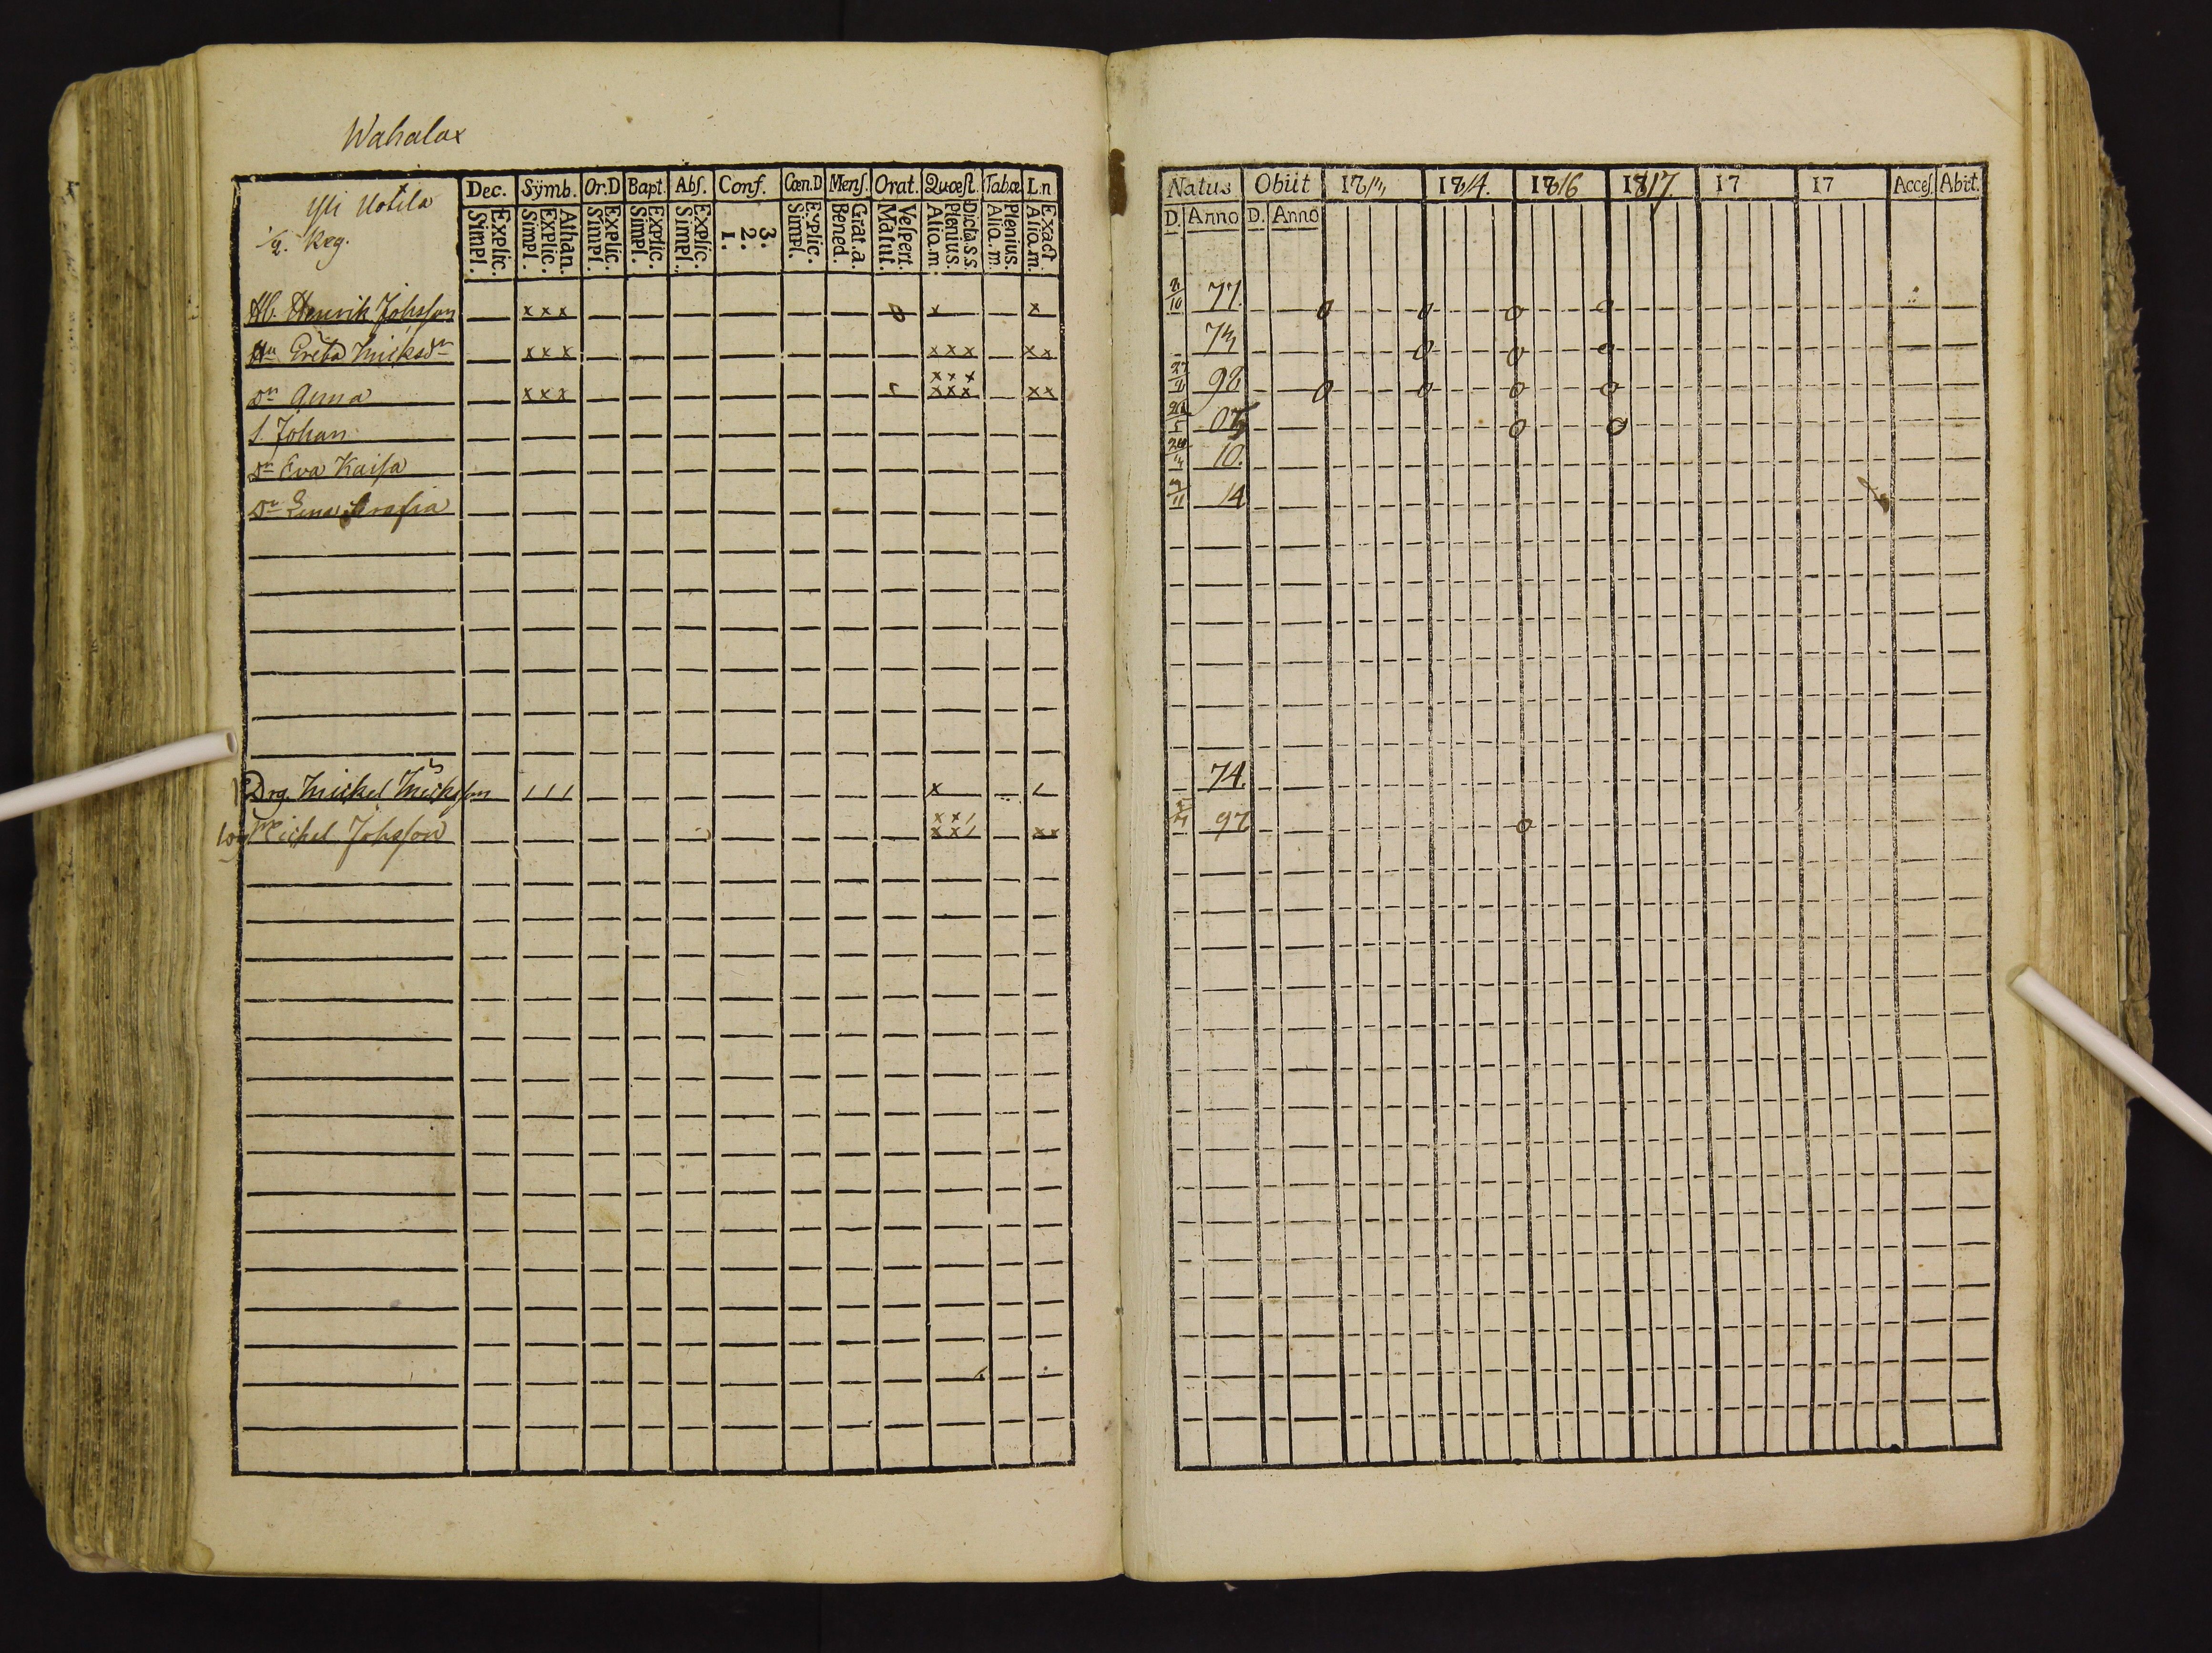 Wahalax
Yli Uotila
1/2. Reg.
Dec. Sÿmb. Or.D Bapt. Abſ. Conf. Cœn.D Menſ. Orat. Quœſt. Tabæ L.n
Explic. Simpl. Athan. Explic. Simpl. Explic. Simpl. Explic. Simpl. Explic. Simpl. 3. 2. 1. Explic. Simpl. Grat.a. Bened. Veſpert. Matut. Dicta.S.S. Plenius. Alio.m. Plenius. Alio.m. Exact Alio.m.
Hb. Henrik Johsson xxx x x
Hu Greta Micksdr xxx xxx xx
xxx
Dr Anna xxx xxx xx
S. Johan
Dr Eva Kaisa
Dr Lena Sofia
Drg. Mickel Micksson / / / x
xx/
Michel Johsson xx/ xx
Natus Obiit 18 1814. 1816 1817. 17 17 Acceſ. Abit.
D. Anno D. Anno
77. o o o o
o o o
98 o o o o
05 o o
10.
14
74.
97 o